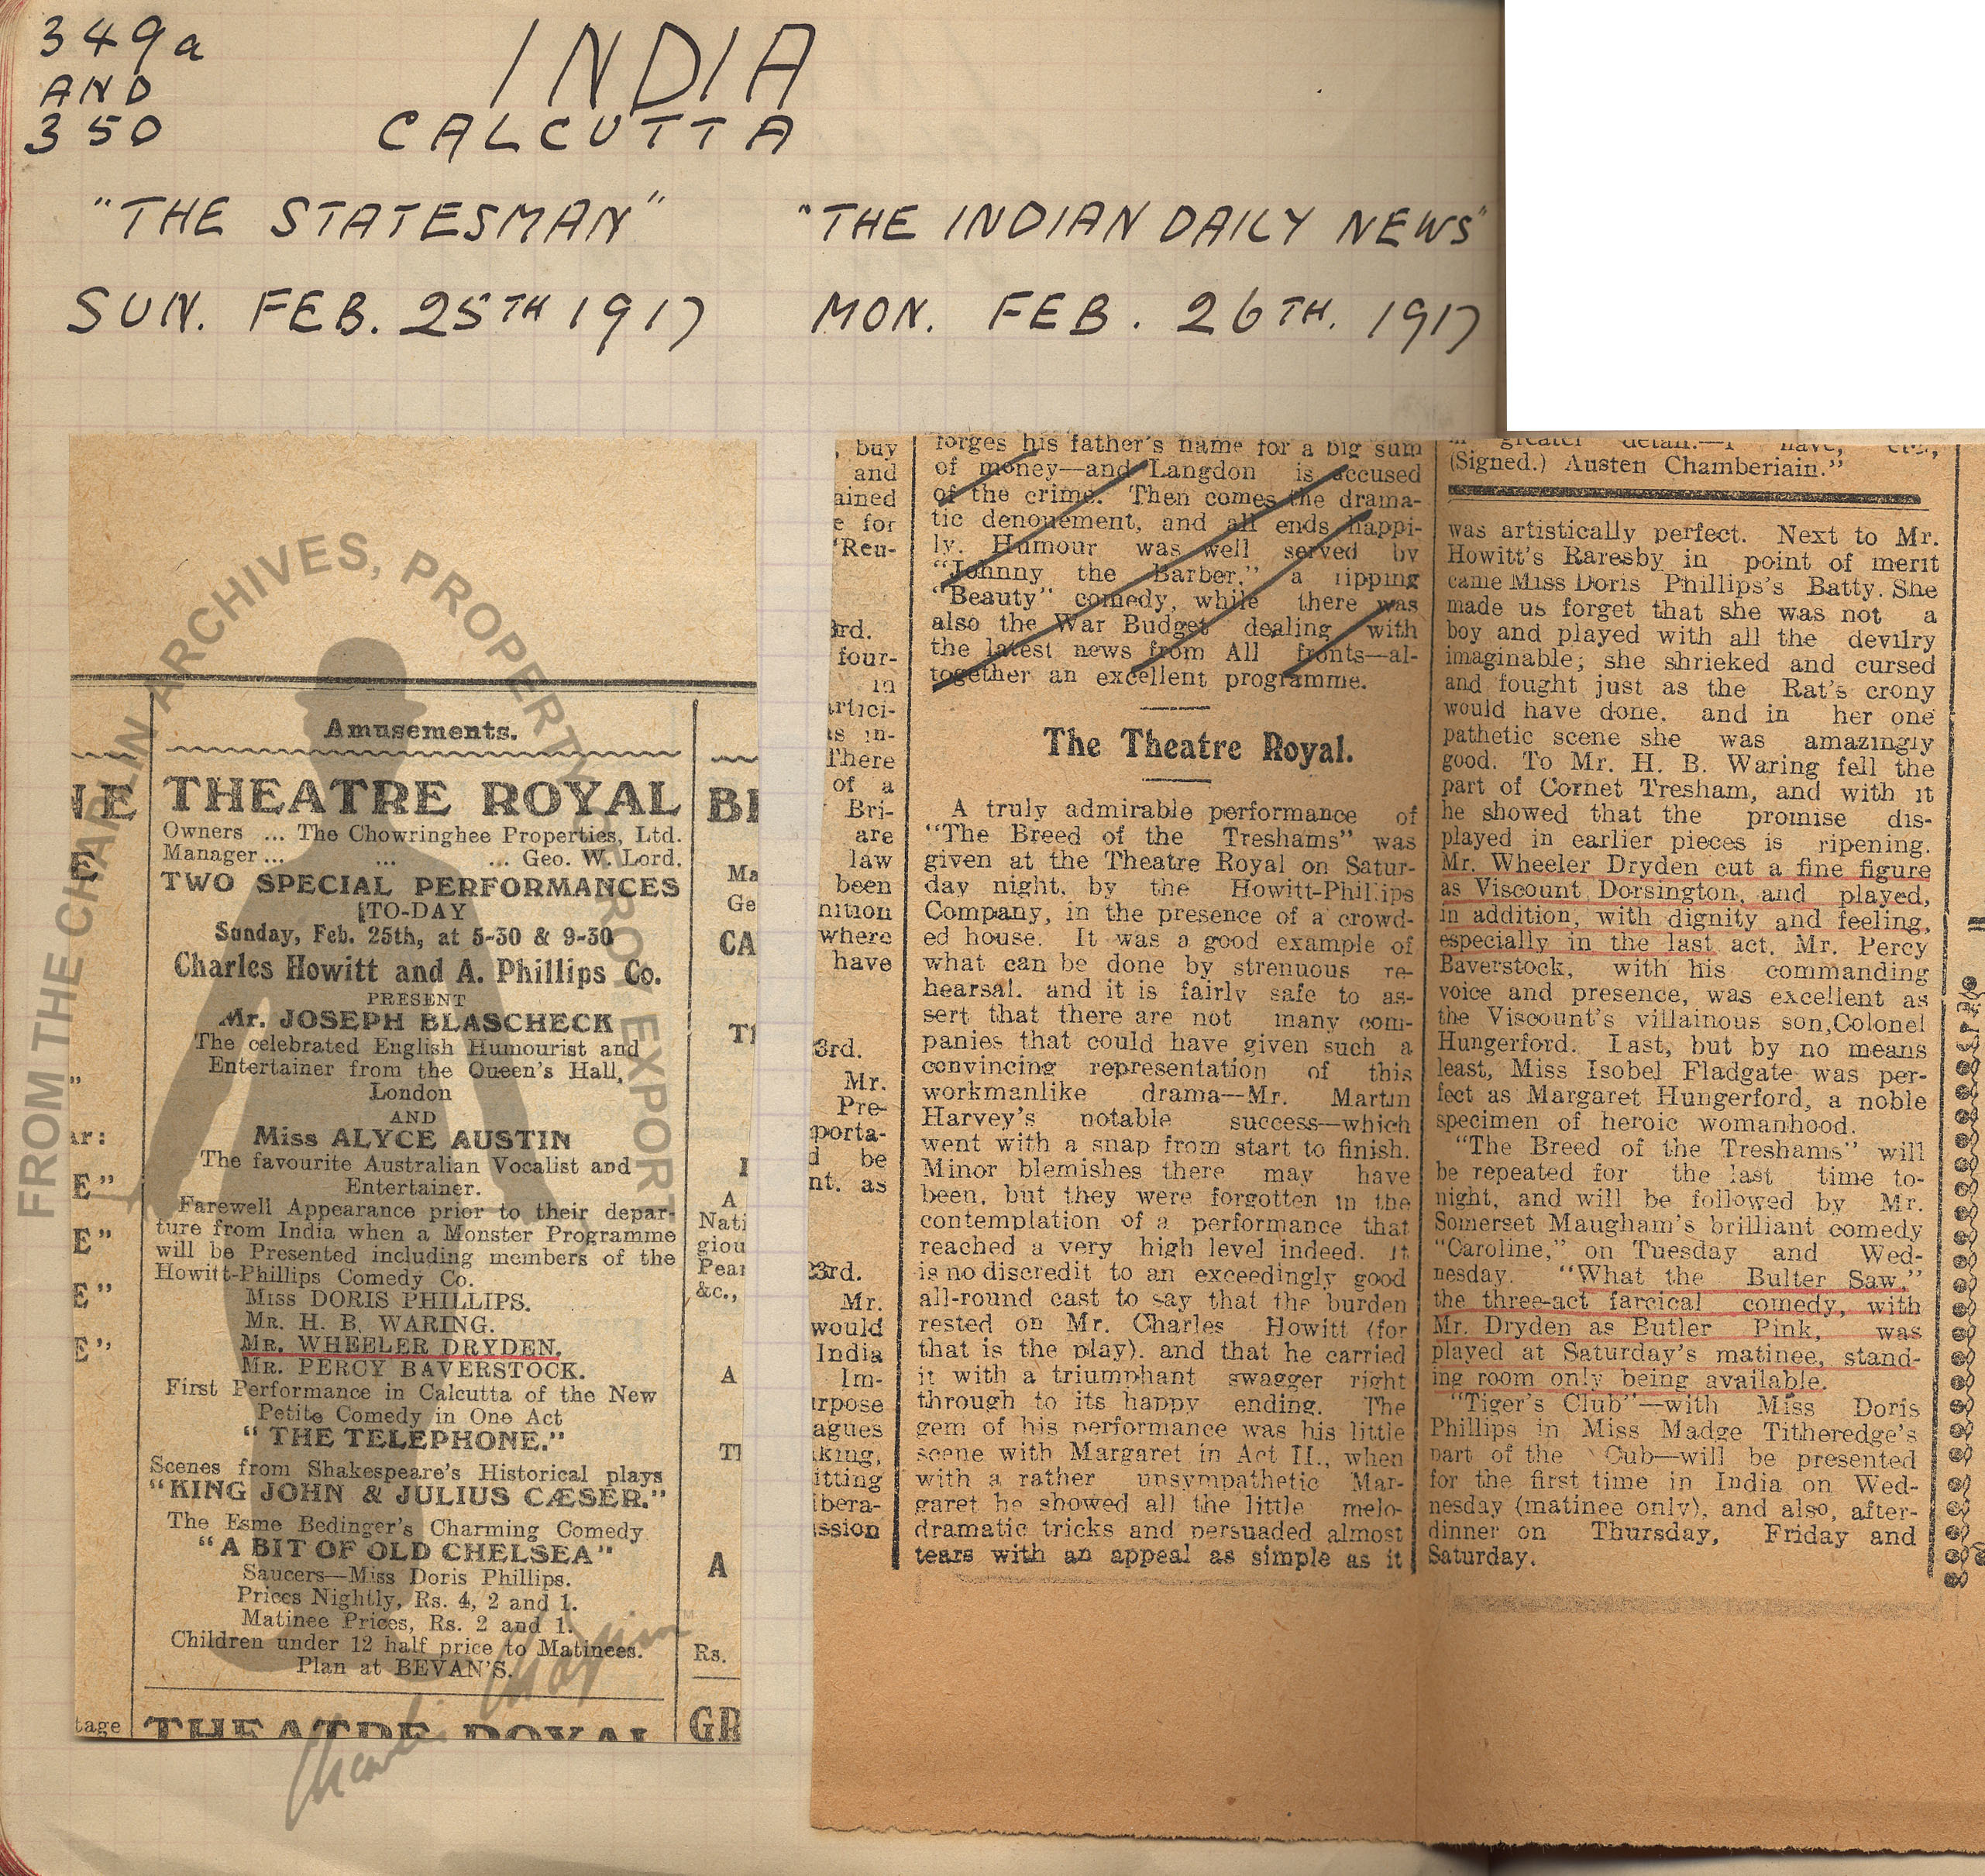 349a
AND
350
INDIA
CALCUTTA
"THE STATESMAN"
SUN. FEB. 25TH 1917
"THE INDIAN DAILY NEWS"
MON. FEB. 26TH. 1917
FROM THE CHAPLIN ARCHIVES, PROPERTY OF ROY EXPORT
Amusements.
THEATRE ROYAL
Owners ... The Chowringhee Properties, Ltd.
Manager... ... ... Geo. W. Lord.
TWO SPECIAL PERFORMANCES
TO-DAY
Sunday, Feb. 25th, at 5-30 & 9-30
Charles Howitt and A. Phillips Co.
PRESENT
Mr. JOSEPH BLASCHECK
The celebrated English Humourist and
Entertainer from the Queen's Hall,
London
AND
Miss ALYCE AUSTIN
The favourite Australian Vocalist and
Entertainer.
Farewell Appearance prior to their depar-
ture from India when a Monster Programme
will be Presented including members of the
Howitt-Phillips Comedy Co.
Miss DORIS PHILLIPS.
MR. H. B. WARING.
MR. WHEELER DRYDEN.
MR. PERCY BAVERSTOCK.
First Performance in Calcutta of the New
Petite Comedy in One Act
"THE TELEPHONE."
Scenes from Shakespeare's Historical plays
"KING JOHN & JULIUS CÆSER."
The Esme Bedinger's Charming Comedy
"A BIT OF OLD CHELSEA"
Saucers—Miss Doris Phillips.
Prices Nightly, Rs. 4, 2 and 1.
Matinee Prices, Rs. 2 and 1.
Children under 12 half price to Matinees.
Plan at BEVAN'S.
THEATRE ROYAL
Charlie Chaplin
forges his father's name for a big sum
of money—and Langdon is accused
of the crime. Then comes the drama-
tic denouement, and all ends happi-
ly. Humour was well served by
"Johnny the Barber," a ripping
"Beauty" comedy, while there was
also the War Budget dealing with
the latest news from All fronts—al-
together an excellent programme.
The Theatre Royal.
A truly admirable performance of
"The Breed of the Treshams" was
given at the Theatre Royal on Satur-
day night, by the Howitt-Phillips
Company, in the presence of a crowd-
ed house. It was a good example of
what can be done by strenuous re-
hearsal. and it is fairly safe to as-
sert that there are not many com-
panies that could have given such a
convincing representation of this
workmanlike drama—Mr. Martin
Harvey's notable success—which
went with a snap from start to finish.
Minor blemishes there may have
been, but they were forgotten in the
contemplation of a performance that
reached a very high level indeed. It
is no discredit to an exceedingly good
all-round cast to say that the burden
rested on Mr. Charles Howitt (for
that is the play). and that he carried
it with a triumphant swagger right
through to its happy ending. The
gem of his performance was his little
scene with Margaret in Act II., when
with a rather unsympathetic Mar-
garet he showed all the little melo-
dramatic tricks and persuaded almost
tears with an appeal as simple as it
in greater detail.—I have, etc.,
(Signed.) Austen Chamberiain."
was artistically perfect. Next to Mr.
Howitt's Raresby in point of merit
came Miss Doris Phillips's Batty. She
made us forget that she was not a
boy and played with all the devilry
imaginable; she shrieked and cursed
and fought just as the Rat's crony
would have done. and in her one
pathetic scene she was amazingly
good. To Mr. H. B. Waring fell the
part of Cornet Tresham, and with it
he showed that the promise dis-
played in earlier pieces is ripening.
Mr. Wheeler Dryden cut a fine figure
as Viscount Dorsington, and played,
in addition, with dignity and feeling,
especially in the last act. Mr. Percy
Baverstock, with his commanding
voice and presence, was excellent as
the Viscount's villainous son, Colonel
Hungerford. Last, but by no means
least, Miss Isobel Fladgate was per-
fect as Margaret Hungerford, a noble
specimen of heroic womanhood.
"The Breed of the Treshams" will
be repeated for the last time to-
night, and will be followed by Mr.
Somerset Maugham's brilliant comedy
"Caroline," on Tuesday and Wed-
nesday. "What the Bulter Saw,"
the three-act farcical comedy, with
Mr. Dryden as Butler Pink, was
played at Saturday's matinee, stand-
ing room only being available.
"Tiger's Club"—with Miss Doris
Phillips in Miss Madge Titheredge's
part of the Cub—will be presented
for the first time in India on Wed-
nesday (matinee only), and also, after-
dinner on Thursday, Friday and
Saturday.